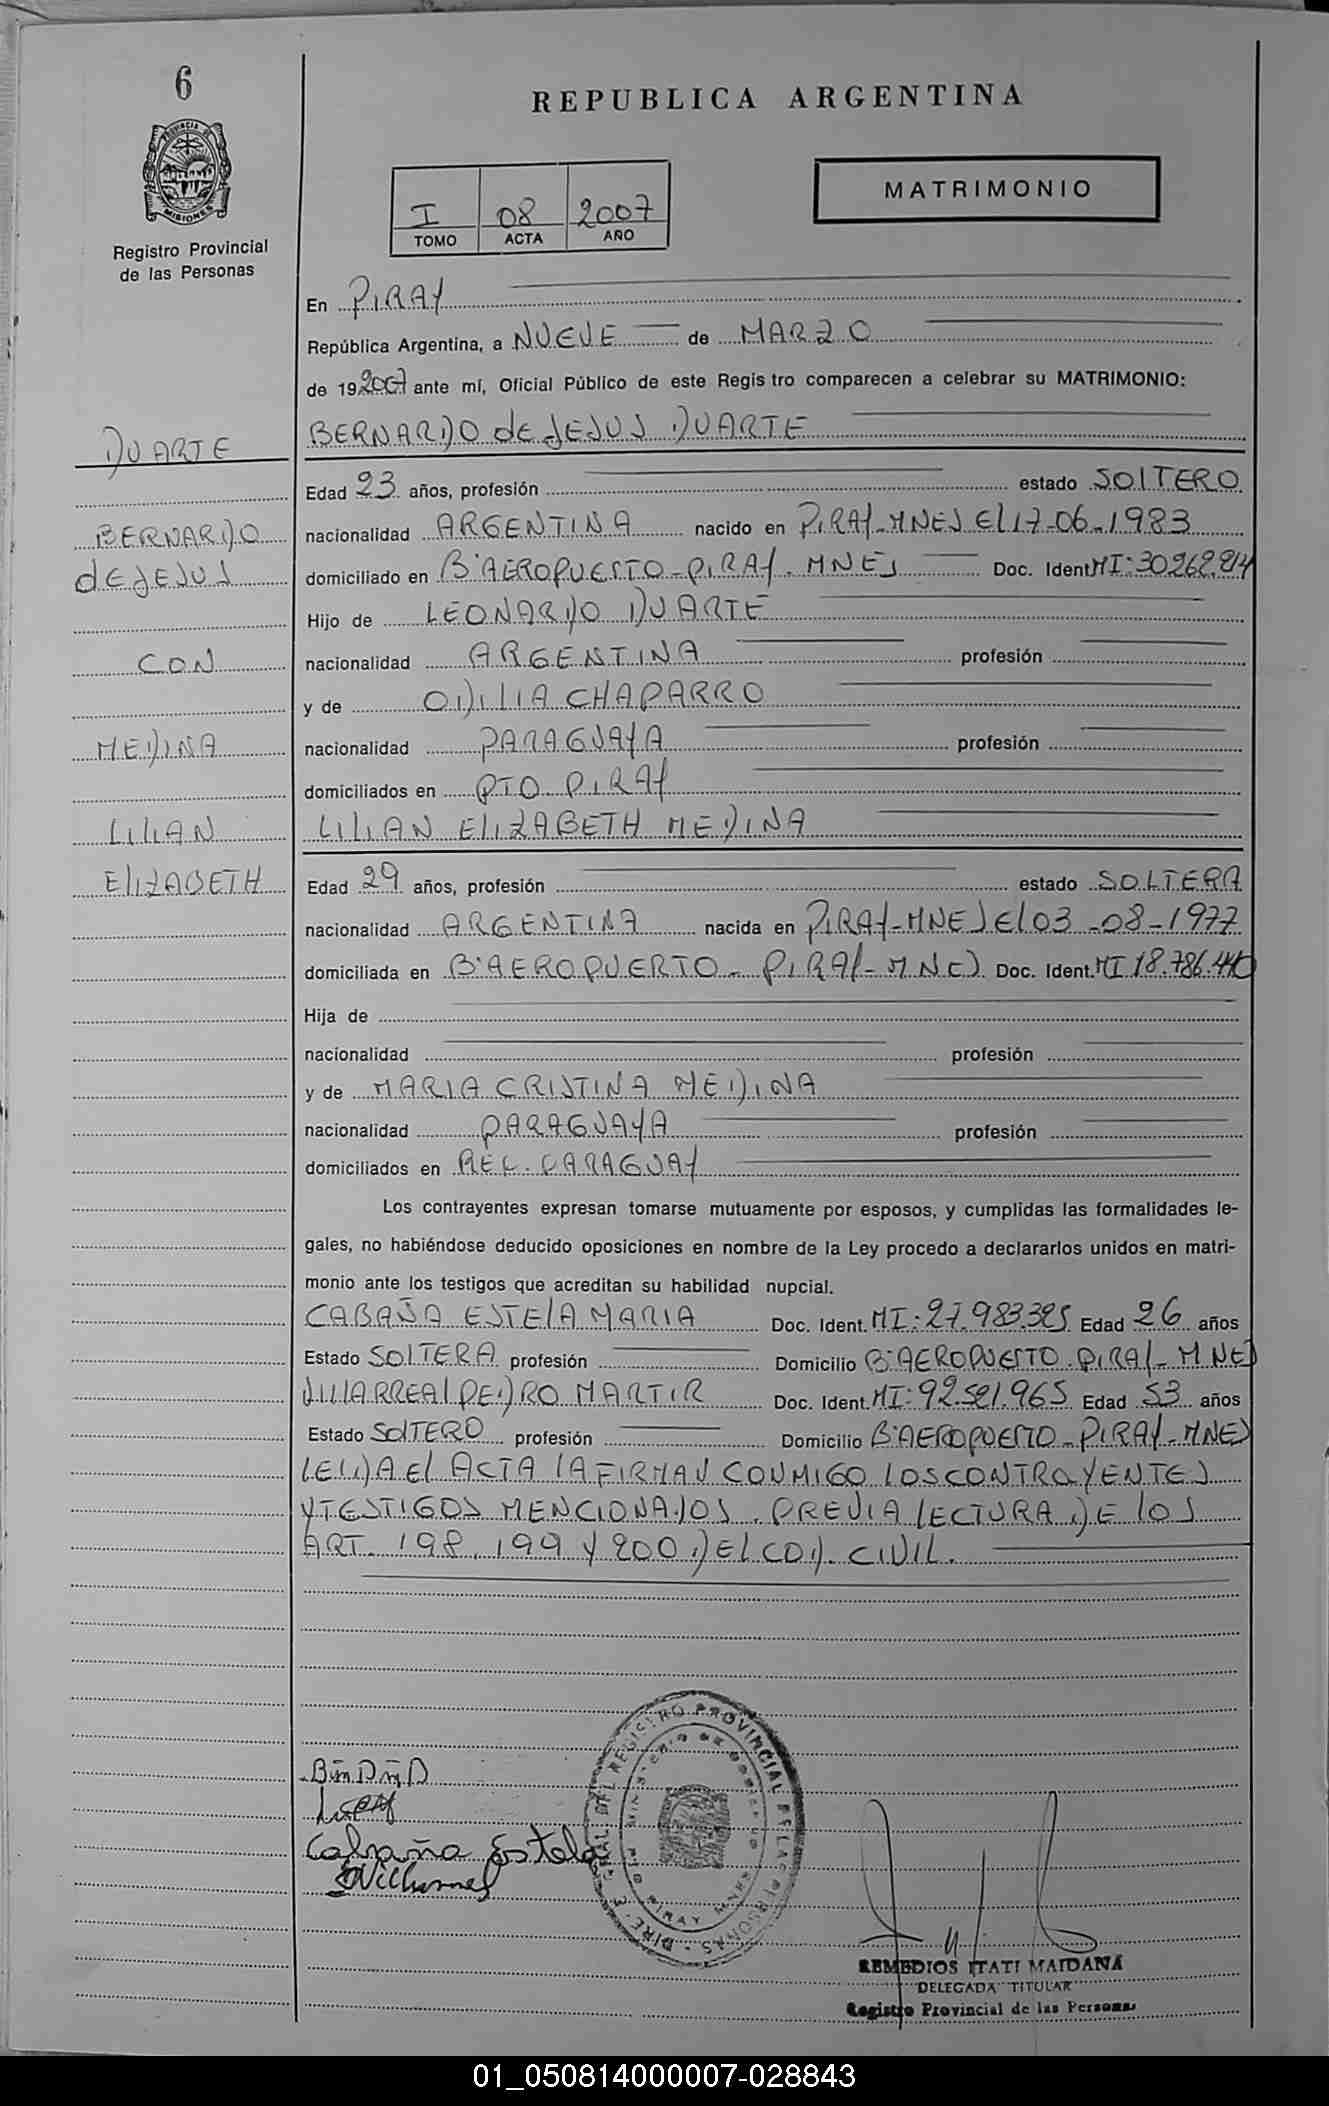 6
REPUBLICA ARGENTINA
PROVINCIA DE
MISIONES
MATRIMONIO
I 08 2007
TOMO ACTA AÑO
Registro Provincial
de las Personas
En PIRAY
República Argentina, a NUEVE de MARZO
de 19 2007 ante mí, Oficial Público de este Regis tro comparecen a celebrar su MATRIMONIO:
BERNARDO de JESUS DUARTE
DUARTE
Edad 23 años, profesión estado SOLTERO
BERNARDO
nacionalidad ARGENTINA nacido en PIRAY-MNES El 17-06-1983
de JESUS
domiciliado en Bº AEROPUERTO-PIRAY-MNES Doc. Ident. MI:30262.814
Hijo de LEONARDO DUARTE
CON
nacionalidad ARGENTINA profesión
y de ODILIA CHAPARRO
MEDINA
nacionalidad PARAGUAYA profesión
domiciliados en PTO PIRAY
LILIAN
LILIAN ELIZABETH MEDINA
ELIZABETH
Edad 29 años, profesión estado SOLTERA
nacionalidad ARGENTINA nacida en PIRAY-MNES El 03-08-1977
domiciliada en Bº AEROPUERTO-PIRAY-MNES Doc. Ident. MI 18.786.440
Hija de
nacionalidad profesión
y de MARIA CRISTINA MEDINA
nacionalidad PARAGUAYA profesión
domiciliados en REP. PARAGUAY
Los contrayentes expresan tomarse mutuamente por esposos, y cumplidas las formalidades le-
gales, no habiéndose deducido oposiciones en nombre de la Ley procedo a declararlos unidos en matri-
monio ante los testigos que acreditan su habilidad nupcial.
CABAÑA ESTELA MARIA Doc. Ident. MI:27.983.325 Edad 26 años
Estado SOLTERA profesión Domicilio Bº AEROPUERTO-PIRAY-MNES
VILLARREAL PEDRO MARTIR Doc. Ident. MI:92.521.965 Edad 53 años
Estado SOLTERO profesión Domicilio Bº AEROPUERTO-PIRAY-MNES
LEIDA El ACTA LA FIRMAN CONMIGO LOS CONTRAYENTES
Y TESTIGOS MENCIONADOS. PREVIA LECTURA DE LOS
ART. 198, 199 Y 200 DEL COD. CIVIL.
Cabaña Estela
REGISTRO PROVINCIAL DE LAS PERSONAS
MINISTERIO DE GOBIERNO
PIRAY MNES
REMEDIOS ITATI MAIDANA
DELEGADA TITULAR
Registro Provincial de las Personas
01_050814000007-028843